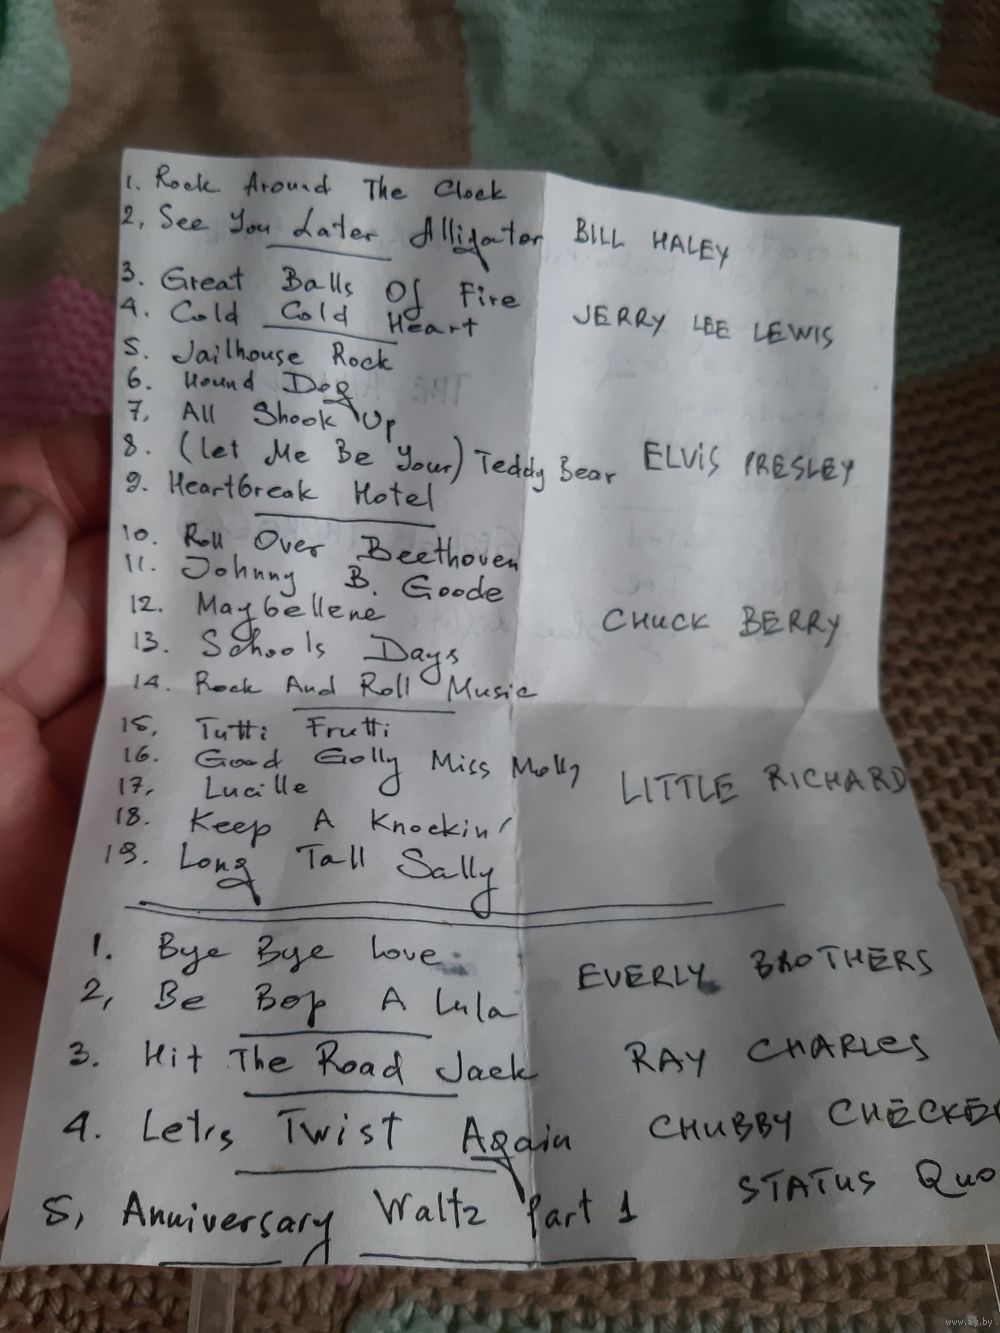 1. Rock Around The Clock
2, See You Later Alligator BILL HALEY
3. Great Balls Of Fire
4. Cold Cold Heart JERRY LEE LEWIS
5. Jailhouse Rock
6. Hound Dog
7, All Shook Up
8. (let Me Be Your) Teddy Bear ELVIS PRESLEY
9. Heartbreak Hotel
10. Roll Over Beethoven
11. Johnny B. Goode
12. Maybellene CHUCK BERRY
13. Schools Days
14. Rock And Roll Music
15, Tutti Frutti
16. Good Golly Miss Molly LITTLE RICHARD
17, Lucille
18. Keep A Knockin'
19. Long Tall Sally
1. Bye Bye Love EVERLY BROTHERS
2, Be Bop A Lula
3. Hit The Road Jack RAY CHARLES
4. Let,s Twist Again CHUBBY CHECKER
5, Anniversary Waltz Part 1 STATUS QUO
www.ay.by